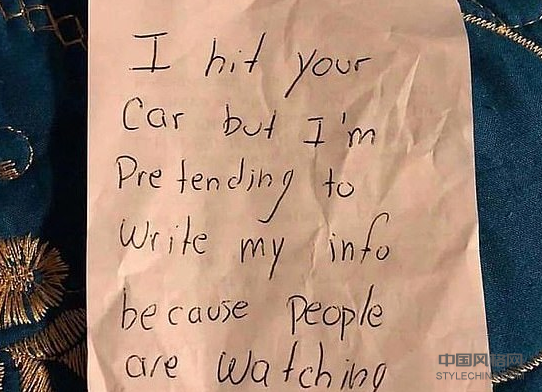 I hit your
Car but I'm
Pretending to
Write my info
because People
are Watching
中国风格网
STYLECHINA.COM